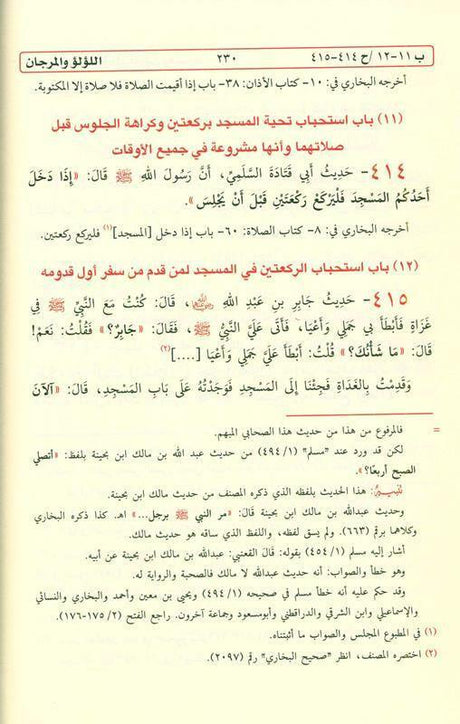 ب ١١-١٢ /ح ٤١٤-٤١٥ ٢٣٠ اللؤلؤ والمرجان
أخرجه البخاري في: ١٠- كتاب الأذان: ٣٨- باب إذا أقيمت الصلاة فلا صلاة إلا المكتوبة.
(١١) باب استحباب تحية المسجد بركعتين وكراهة الجلوس قبل
صلاتهما وأنها مشروعة في جميع الأوقات
٤١٤- حَدِيثُ أَبِي قَتَادَةَ السَّلَمِيِّ، أَنَّ رَسُولَ اللهِ ﷺ قَالَ: «إِذَا دَخَلَ
أَحَدُكُمُ الْمَسْجِدَ فَلْيَرْكَعْ رَكْعَتَيْنِ قَبْلَ أَنْ يَجْلِسَ».
أخرجه البخاري في: ٨- كتاب الصلاة: ٦٠- باب إذا دخل [المسجد](١) فليركع ركعتين.
(١٢) باب استحباب الركعتين في المسجد لمن قدم من سفر أول قدومه
٤١٥- حَدِيثُ جَابِرِ بْنِ عَبْدِ اللهِ، قَالَ: كُنْتُ مَعَ النَّبِيِّ ﷺ فِي
غَزَاةٍ فَأَبْطَأَ بِي جَمَلِي وَأَعْيَا، فَأَتَى عَلَيَّ النَّبِيُّ ﷺ، فَقَالَ: «جَابِرٌ؟» فَقُلْتُ: نَعَمْ!
قَالَ: «مَا شَأْنُكَ؟» قُلْتُ: أَبْطَأَ عَلَيَّ جَمَلِي وَأَعْيَا [....](٢)
وَقَدِمْتُ بِالْغَدَاةِ فَجِئْنَا إِلَى الْمَسْجِدِ فَوَجَدْتُهُ عَلَى بَابِ الْمَسْجِدِ، قَالَ: «آلآنَ
= فالمرفوع من هذا من حديث هذا الصحابي المبهم.
لكن قد ورد عند "مسلم" (٤٩٤/١) من حديث عبد الله بن مالك ابن بحينة بلفظ: «أتصلي
الصبح أربعًا؟».
تنبيه: هذا الحديث بلفظه الذي ذكره المصنف من حديث مالك ابن بحينة.
وحديث عبدالله بن مالك ابن بحينة قال: «مر النبي ﷺ برجل...» اهـ. كذا ذكره البخاري
وكلاهما برقم (٦٦٣). ولم يسق لفظه، واللفظ الذي ساقه هو حديث مالك.
أشار إليه مسلم (٤٥٤/١) بقوله: قال القعنبي: عبدالله بن مالك ابن بحينة عن أبيه.
وهو خطأ والصواب: أنه حديث عبدالله لا مالك فالصحبة والرواية له.
وقد حكم عليه أنه خطأ مسلم في صحيحه (٤٩٤/١) ويحيى بن معين وأحمد والبخاري والنسائي
والإسماعيلي وابن الشرقي والدراقطني وأبومسعود وجماعة آخرون. راجع الفتح (٢/ ١٧٥-١٧٦).
(١) في المطبوع المجلس والصواب ما أثبتناه.
(٢) اختصره المصنف، انظر "صحيح البخاري" رقم (٢٠٩٧).